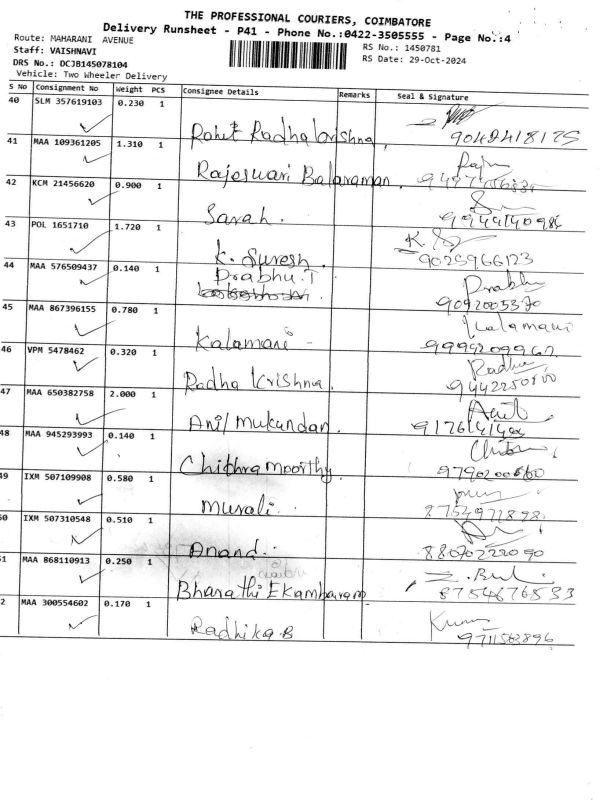 THE PROFESSIONAL COURIERS, COIMBATORE
Delivery Runsheet - P41 - Phone No.:0422-3505555 - Page No.:4
Route: MAHARANI AVENUE
RS No.: 1450781
Staff: VAISHNAVI
RS Date: 29-Oct-2024
DRS No.: DCJB145078104
Vehicle: Two Wheeler Delivery
S No Consignment No Weight PCS Consignee Details Remarks Seal & Signature
40 SLM 357619103 0.230 1
Rohit Radhakrishna,
41 MAA 109361205 1.310 1
Rajeswari Balaraman.
42 KCM 21456620 0.900 1
Sarah.
43 POL 1651710 1.720 1
K. Suresh. 9025966123
44 MAA 576509437 0.140 1
Prabhu.T Prabhu
9092005370
45 MAA 867396155 0.780 1
Kalamani - Kalamani
46 VPM 5478462 0.320 1
Radha Krishna. Radha
47 MAA 650382758 2.000 1
Anil Mukundan.
48 MAA 945293993 0.140 1
Chithramoorthy
49 IXM 507109908 0.580 1
Murali.
50 IXM 507310548 0.510 1
Anand. 8807022090
51 MAA 868110913 0.250 1
Bharathi Ekambaram 8754676533
2 MAA 300554602 0.170 1
Radhika B